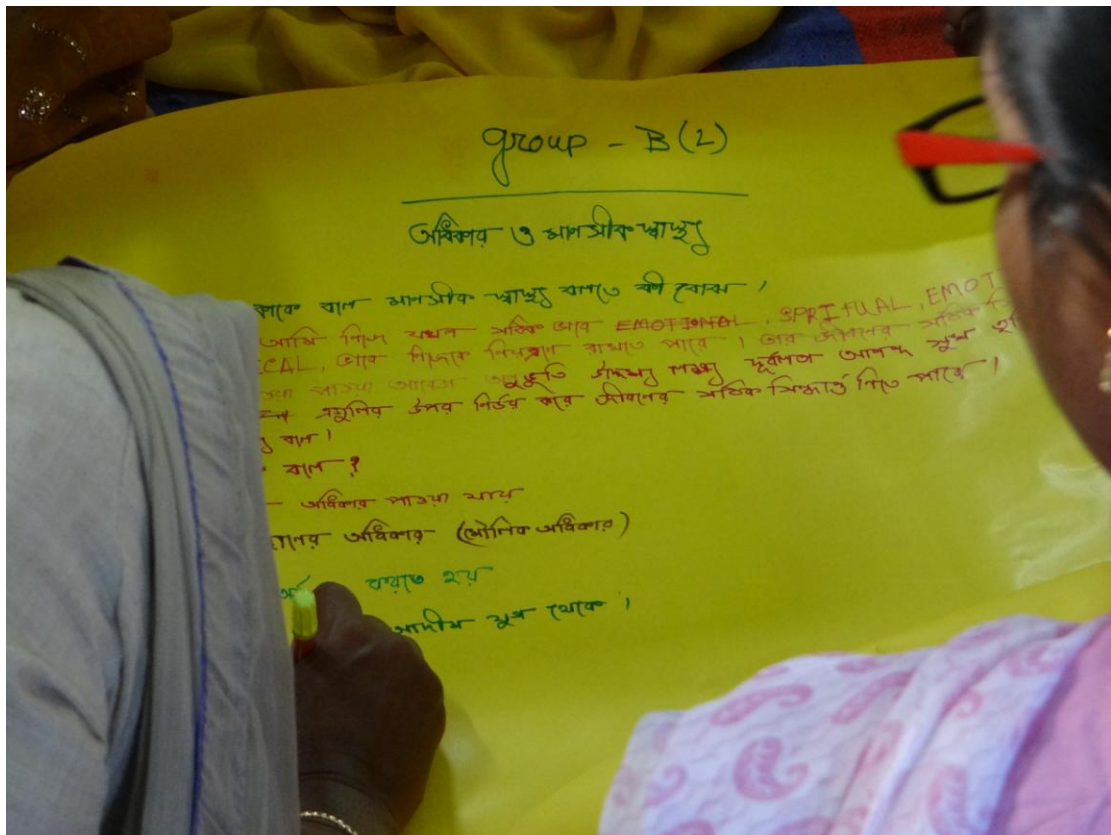 group - B(2)
অধিকার ও মানসীক স্বাস্থ্য
কাকে বলে মানসীক স্বাস্থ্য বলতে কী বোঝ ।
আমি নিজে যখন সঠিক ভাবে EMOTIONAL, SPRITUAL, EMOT
ICAL, ভাবে নিজেকে নিয়ন্ত্রনে রাখতে পারে । তার জীবনের সঠিক
পাওয়া আবেগ অনুভূতি উদ্দেশ্য লক্ষ্য দূর্বলতা আনন্দ সুখ
এগুলির উপর নির্ভর করে জীবনের সঠিক সিদ্ধার্ত নিতে পারে ।
বলে ।
বলে ?
– অধিকার পাওয়া যায়
অধিকার (মৌলিক অধিকার)
করতে হয়
থেকে ।